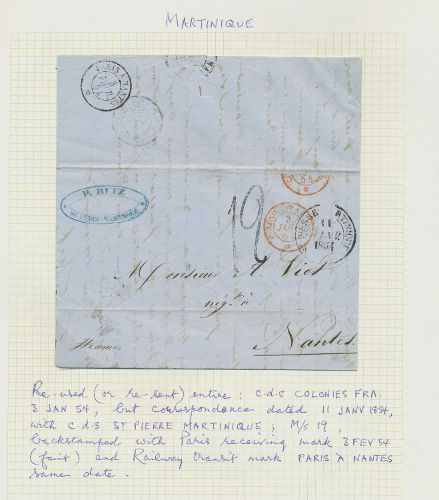 MARTINIQUE
PARIS A NANTES
P. RUYZ
ST PIERRE-MARTINIQUE
54
12
ST PIERRE MARTINIQUE
11
JANV
1854
Monsieur A Viot
negt à
Nantes
Steamer
Re-used (or re-sent) entire: c.d.s COLONIES FRA.
3 JAN 54, but correspondence dated 11 JANV 1854,
with c.d.s ST PIERRE MARTINIQUE; M/S 19,
backstamped with Paris receiving mark 3 FEV 54
(faint) and Railway transit mark PARIS A NANTES
same date.